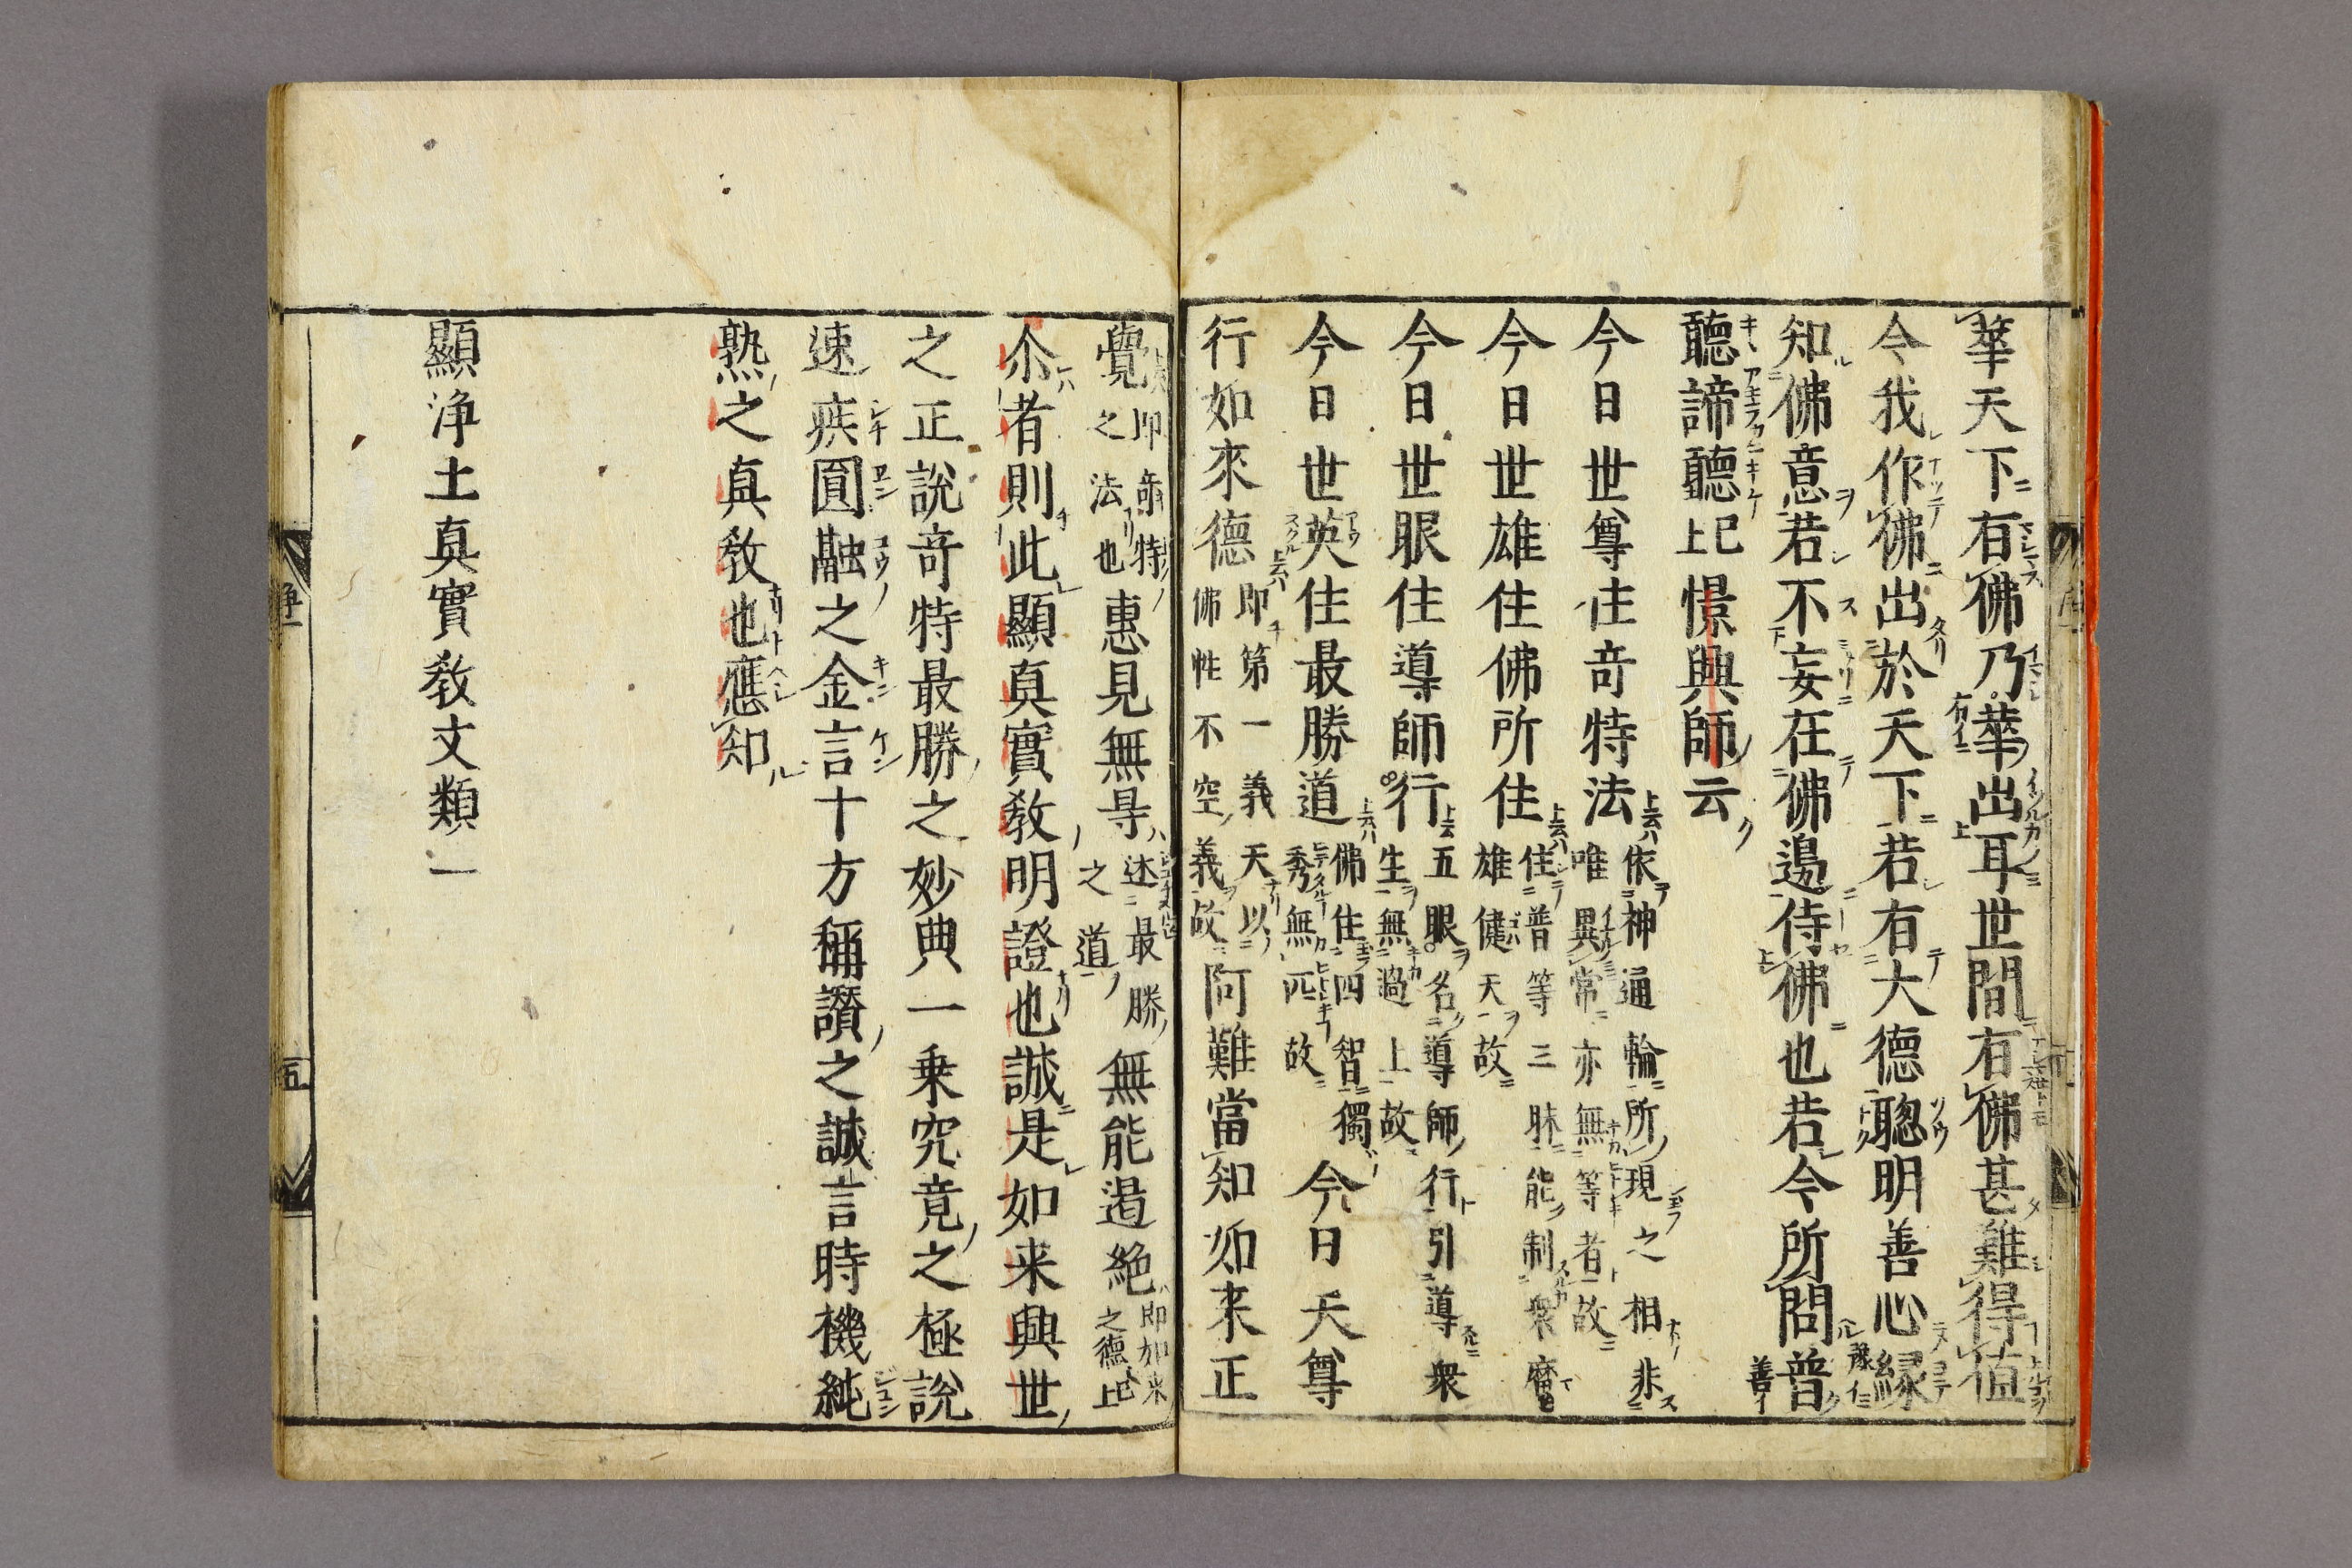 華天下有佛乃華出耳世間有佛甚難得値
今我作佛出於天下若有大德聰明善心縁
知佛意若不妄在佛邊侍佛也若今所問普
聽諦聽已上憬興師云
今日世尊住竒特法依神通輪所現之相非唯異常亦無等者故
今日世雄住佛所住住普等三昧能制衆魔雄健天故
今日世眼住導師行五眼名導師行引導衆生無過上故
今日世英住最勝道佛住四智獨秀無匹故今日天尊
行如來德即第一義天以佛性不空義故阿難當知如来正
覺即竒特之法也惠見無㝵述最勝之道無能遏絶即如来之德已上
尒者則此顯真實教明證也誠是如来興世
之正說竒特最勝之妙典一乗究竟之極說
速疾圓融之金言十方稱讃之誠言時機純
熟之真教也應知
顯浄土真實教文類一
五